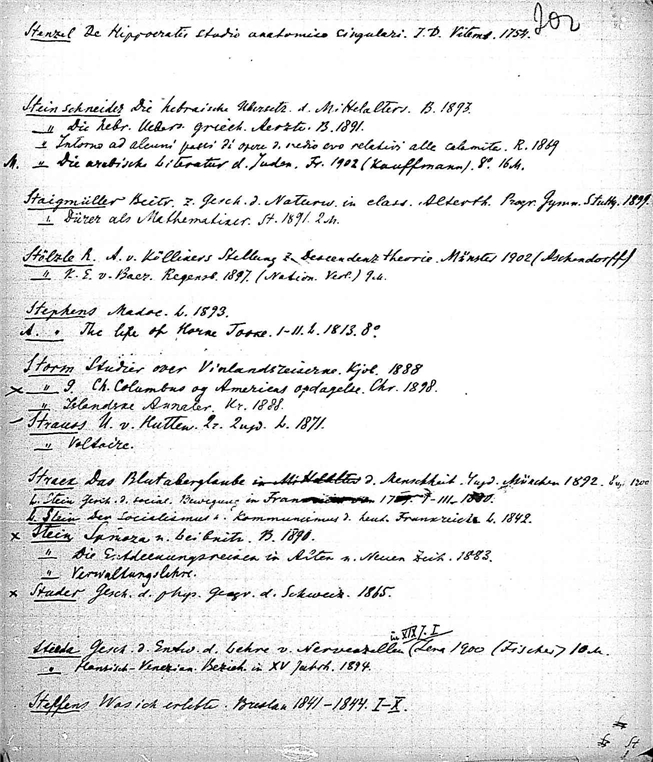 202
Stenzel De Hippocratis studio anatomico singulari. J.D. Vitemb. 1754.
Steinschneider Die hebraische Übersetz. d. Mittelalters. B. 1893.
" Die hebr. Uebers. griech. Aerzte. B. 1891.
" Intorno ad alcuni passi di opere d. medio evo relativi alla calamita. R. 1869
M. " Die arabische Literatur d. Juden. Fr. 1902 (Kauffmann). 8° 16 M.
Staigmüller Beitr. z. Gesch. d. Naturw. in class. Alterth. Progr. Gymn. Stuttg. 1899.
" Dürer als Mathematiker. St. 1891. 2 M.
Stölzle R. A. v. Köllikers Stellung z. Descendenztheorie. Münster 1902 (Aschendorff)
" K. E. v. Baer. Regensb. 1897. (Nation. Verl.) 9 M.
Stephens Madoc. L. 1893.
A. " The life of Horne Tooke. I-II. L. 1813. 8°
Storm Studier over Vinlandsreiserne. Kjöb. 1888
" G. Ch. Columbus og Americas opdagelse. Chr. 1898.
" Islandske Annaler. Kr. 1888.
– Strauss U. v. Hutten. 2. L. 1871.
" Voltaire.
Strack Das Blutaberglaube d. Menschheit. München 1892.
L. Stein Gesch. d. social. Bewegung in I-III.
L. Stein Der Socialismus u. Kommunismus d. heut. Frankreichs L. 1842.
x Stein Spinoza u. Leibnitz. B. 1890.
" Die Entdeckungsreisen in Alten u. Neuen Zeit. 1883.
" Verwaltungslehre.
x Studer Gesch. d. phys. Geogr. d. Schweiz. 1865.
in XIX J. I
Stieda Gesch. d. Entw. d. Lehre v. Nervenzellen (Jena 1900 (Fischer) 10 M.
" Hansisch-Venezian. Bezieh. in XV Jahrh. 1894.
Steffens Was ich erlebte. Breslau 1841–1844. I–X.
St